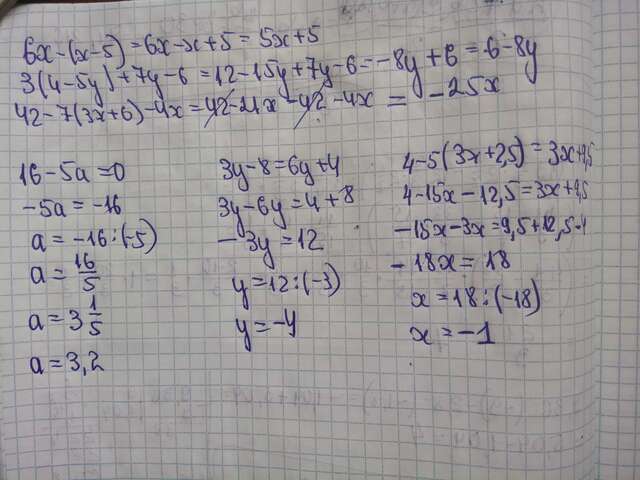 6x-(x-5)=6x-x+5=5x+5
3(4-5y)+7y-6=12-15y+7y-6=-8y+6=6-8y
42-7(3x+6)-4x=42-21x-42-4x=-25x
16-5a=0
-5a=-16
a=-16:(-5)
a=16/5
a=3 1/5
a=3,2
3y-8=6y+4
3y-6y=4+8
-3y=12
y=12:(-3)
y=-4
4-5(3x+2,5)=3x+9,5
4-15x-12,5=3x+9,5
-15x-3x=9,5+12,5-4
-18x=18
x=18:(-18)
x=-1